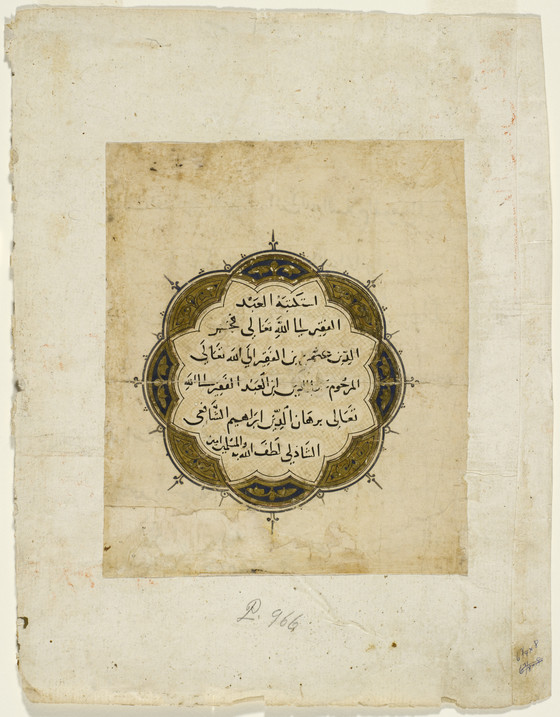 استكتبه العبد
الفقير الى الله تعالى فخر
الدين عثمن بن الفقير الى الله تعالى
المرحوم الدين ابن العبد الفقير الى الله
تعالى برهان الدين ابراهيم الشافعى
الشاذلى لطف الله به والمسلمين امين
P. 966